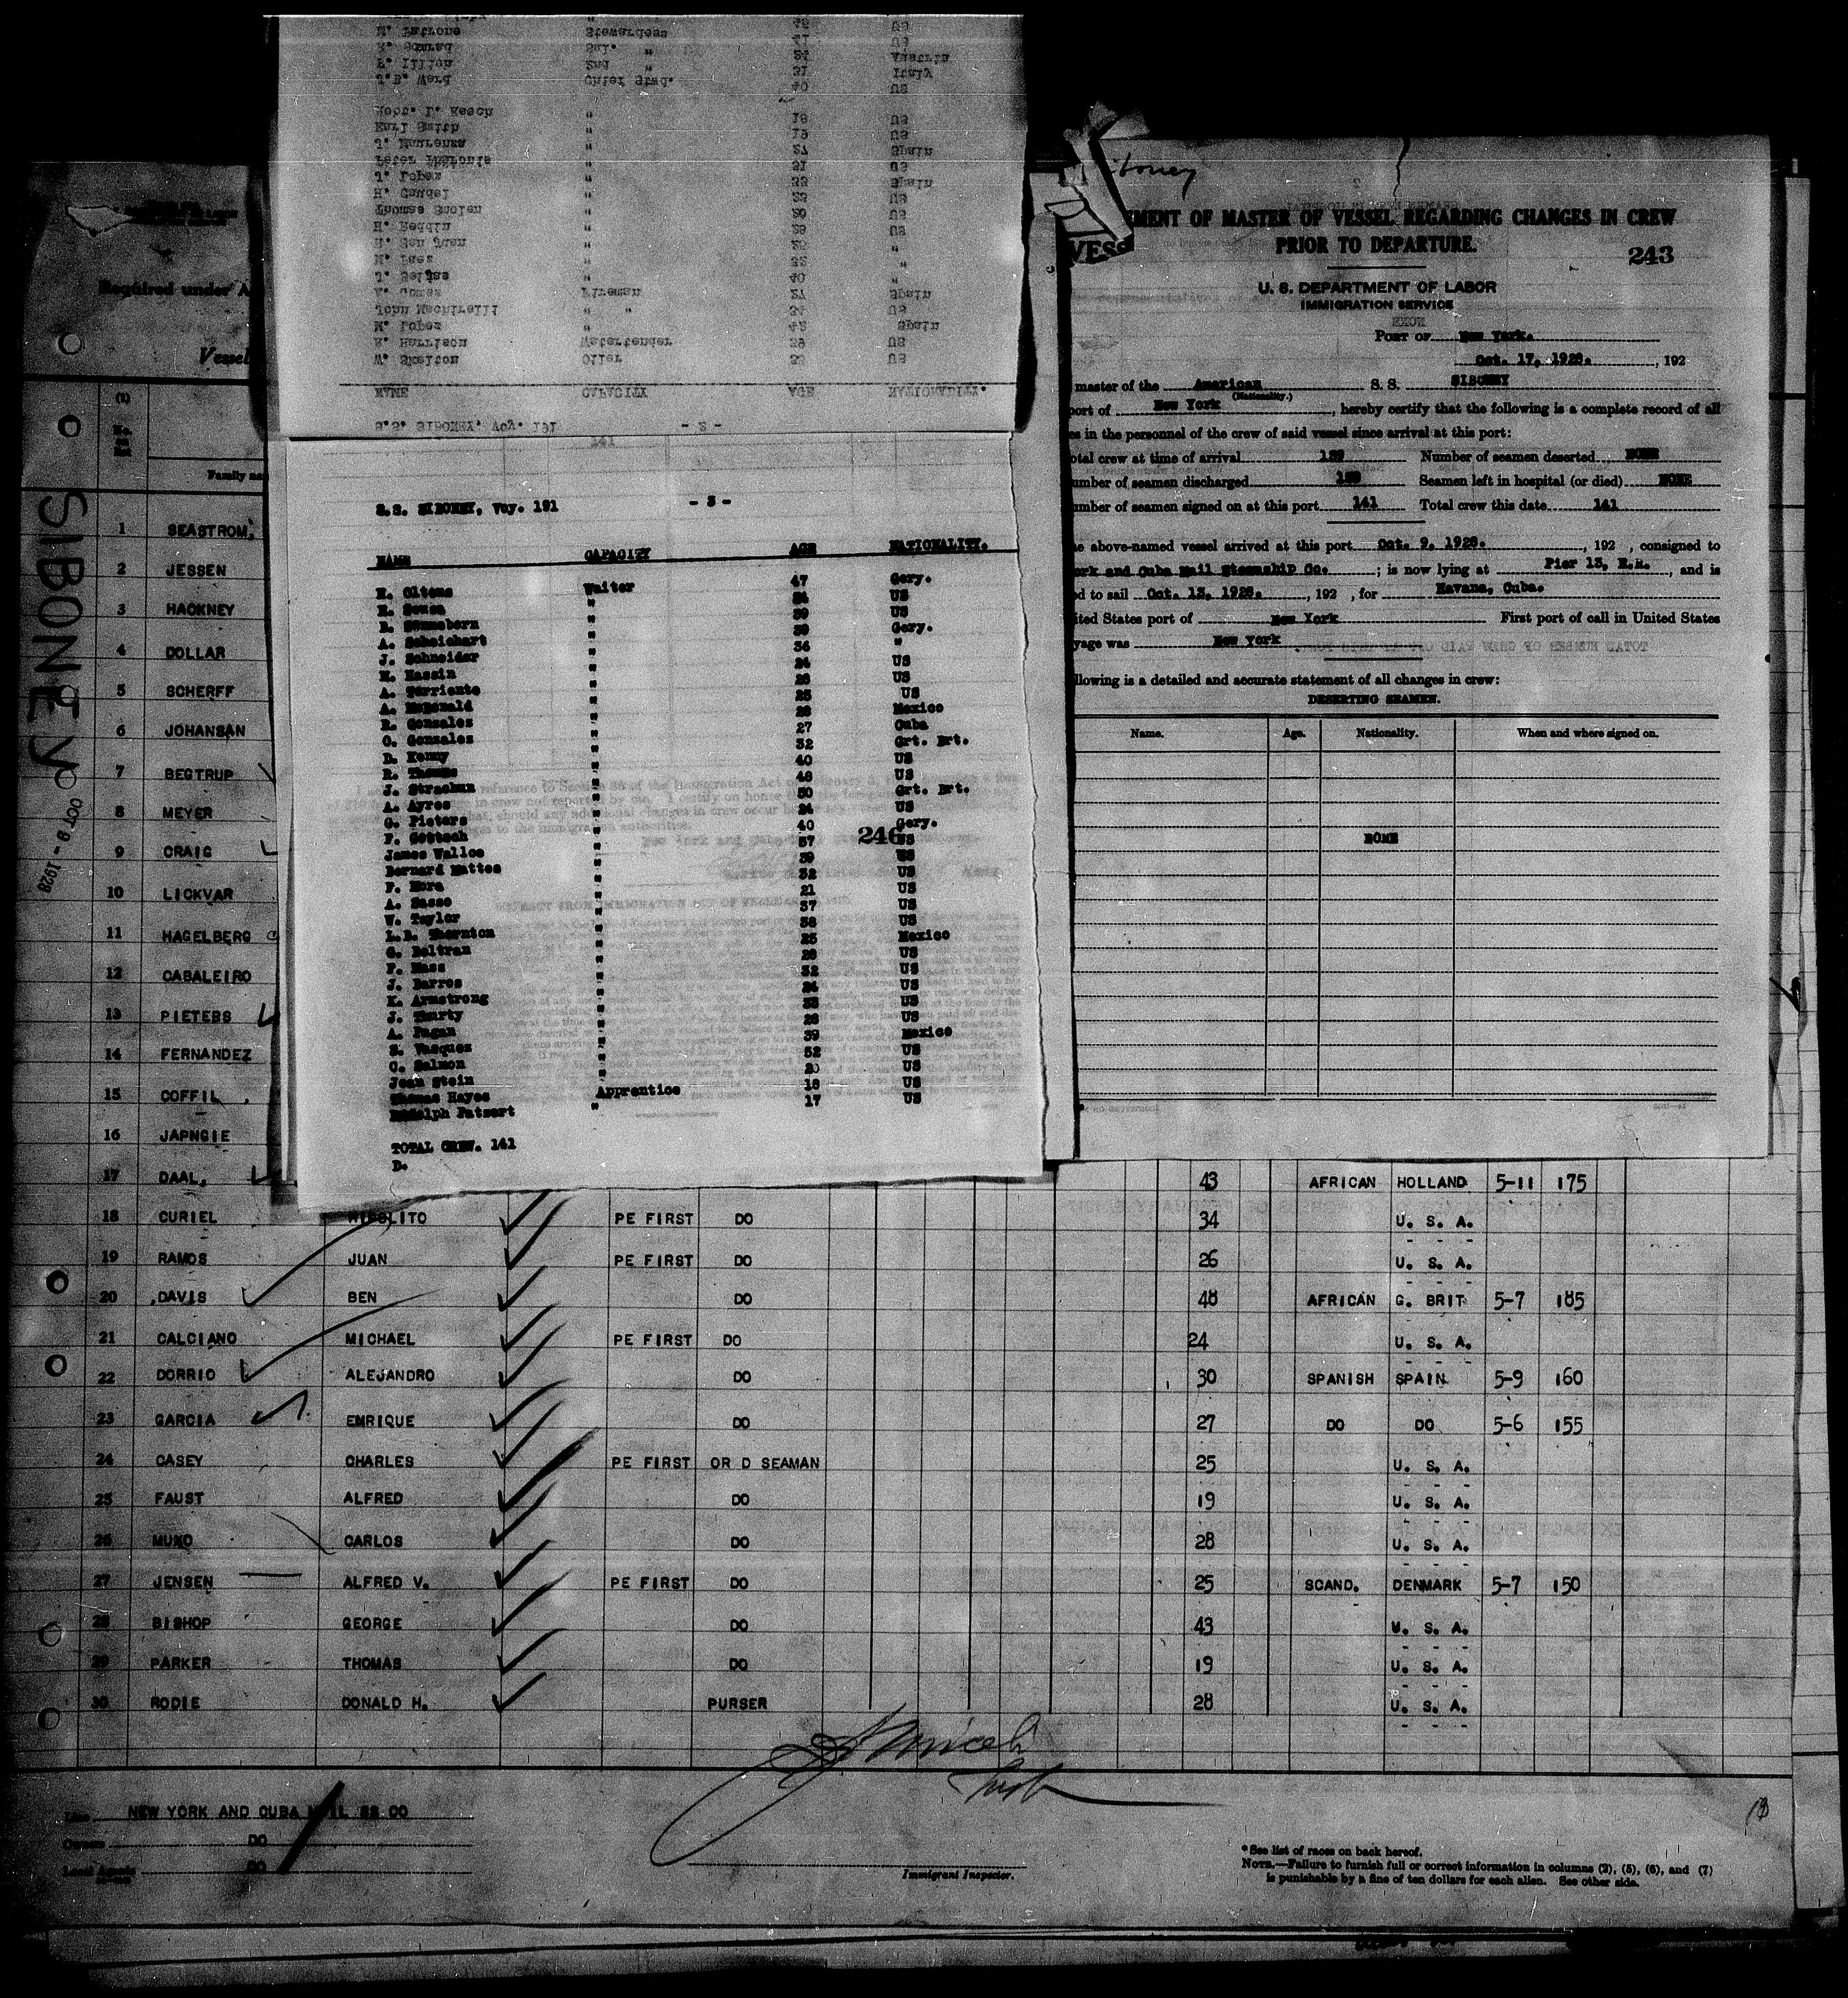 S.S. SIBONEY. Voy. 191 - 2 -
NAME CAPACITY AGE NATIONALITY.
W. Skelton Oiler 33 US
E. Harrison Watertender 39 US
M. Lopez " 42 Spain
John Machirelli " " 34 US
A. Gomez Fireman 27 Spain
J. Seijas " 40 "
M. Paez " 32 "
R. San Juan " 25 "
H. Reddin " 29 US
Thomas Smolen " 20 US
H. Caudel " 23 US
J. Lopez " 33 Spain
Peter " 31 US
J. " 27 Spain
Earl Smith " 19 US
Robt. L. Keech " 18 US
J.B. Ward Chief Stwd. 40 US
F. Illian 2nd " 31 Italy
K. Conrad " 24 Austria
M. Patrone Stewardess 41 US
S.S. SIBONEY, Voy. 191 - 3 -
NAME CAPACITY AGE NATIONALITY.
H. Oltens Waiter 47 Gery.
" US
" 39 US
" Gery.
A. Scheichart " 34 "
J. Schneider " 24 US
M. Hassin " US
A. Torriente " 25 US
A. McDonald " Mexico
R. Gonzales " 27 Cuba
O. Gonzales " 32 Grt. Brt.
D. Kenny " 40 US
R. Thomas " 48 US
J. Strachan " 50 Grt. Brt.
A. Ayres " 24 US
G. Pieters " 40 Gery.
F. Gottsch " 37 US
James Wallce " 39 US
Bernard Mattes " 32 US
F. Mora " 21 US
A. Sasso " 37 US
W. Taylor " 38 US
L.R. Thornton " 25 Mexico
G. Beltran " US
F. Hass " 32 US
J. Barros " 24 US
K. Armstrong " US
J. Thurty " US
A. Pagan " 39 Mexico
S. Vasquez " 52 US
C. Salmon " 20 US
Jean Stein " 18 US
Thomas Hayes Apprentice 17 US
Rudolph Patzert "
246
TOTAL CREW. 141
D.
MENT OF MASTER OF VESSEL REGARDING CHANGES IN CREW
PRIOR TO DEPARTURE.
243
U. S. DEPARTMENT OF LABOR
IMMIGRATION SERVICE
PORT OF New York.
Oct. 17, 1928. , 192
master of the American S. S. SIBONEY
(Nationality.)
port of New York , hereby certify that the following is a complete record of all
es in the personnel of the crew of said vessel since arrival at this port:
otal crew at time of arrival 139 Number of seamen deserted NONE
umber of seamen discharged 139 Seamen left in hospital (or died) NONE
umber of seamen signed on at this port 141 Total crew this date 141
e above-named vessel arrived at this port Oct. 9, 1928. , 192 , consigned to
ork and Cuba Mail Steamship Co. ; is now lying at Pier 13, E.R. , and is
d to sail Oct. 13, 1928. , 192 , for Havana, Cuba.
ited States port of New York First port of call in United States
yage was New York
llowing is a detailed and accurate statement of all changes in crew:
DESERTING SEAMEN.
Name. Age. Nationality. When and where signed on.
NONE
Required under A
Vessel
SIBONEY
OCT 9 - 1928
(1)
Family na
1 SEASTROM,
2 JESSEN
3 HACKNEY
4 DOLLAR
5 SCHERFF
6 JOHANSAN
7 BEGTRUP
8 MEYER
9 CRAIG
10 LICKVAR
11 HAGELBERG
12 CABALEIRO
13 PIETERS
14 FERNANDEZ
15 COFFIL
16 JAPNGIE
17 DAAL, 43 AFRICAN HOLLAND 5-11 175
18 CURIEL HIPOLITO PE FIRST DO 34 U. S. A.
19 RAMOS JUAN PE FIRST DO 26 U. S. A.
20 DAVIS BEN DO 48 AFRICAN G. BRIT 5-7 185
21 CALCIANO MICHAEL PE FIRST DO 24 U. S. A.
22 DORRIO ALEJANDRO DO 30 SPANISH SPAIN 5-9 160
23 GARCIA ENRIQUE DO 27 DO DO 5-6 155
24 CASEY CHARLES PE FIRST OR D SEAMAN 25 U. S. A.
25 FAUST ALFRED DO 19 U. S. A.
26 MUNO CARLOS DO 28 U. S. A.
27 JENSEN ALFRED V. PE FIRST DO 25 SCAND. DENMARK 5-7 150
28 BISHOP GEORGE DO 43 U. S. A.
29 PARKER THOMAS DO 19 U. S. A.
30 RODIE DONALD H. PURSER 28 U. S. A.
Line NEW YORK AND CUBA MAIL SS CO
Owners DO
Local Agents DO
Immigrant Inspector.
* See list of races on back hereof.
NOTE.—Failure to furnish full or correct information in columns (2), (5), (6), and (7)
is punishable by a fine of ten dollars for each alien. See other side.